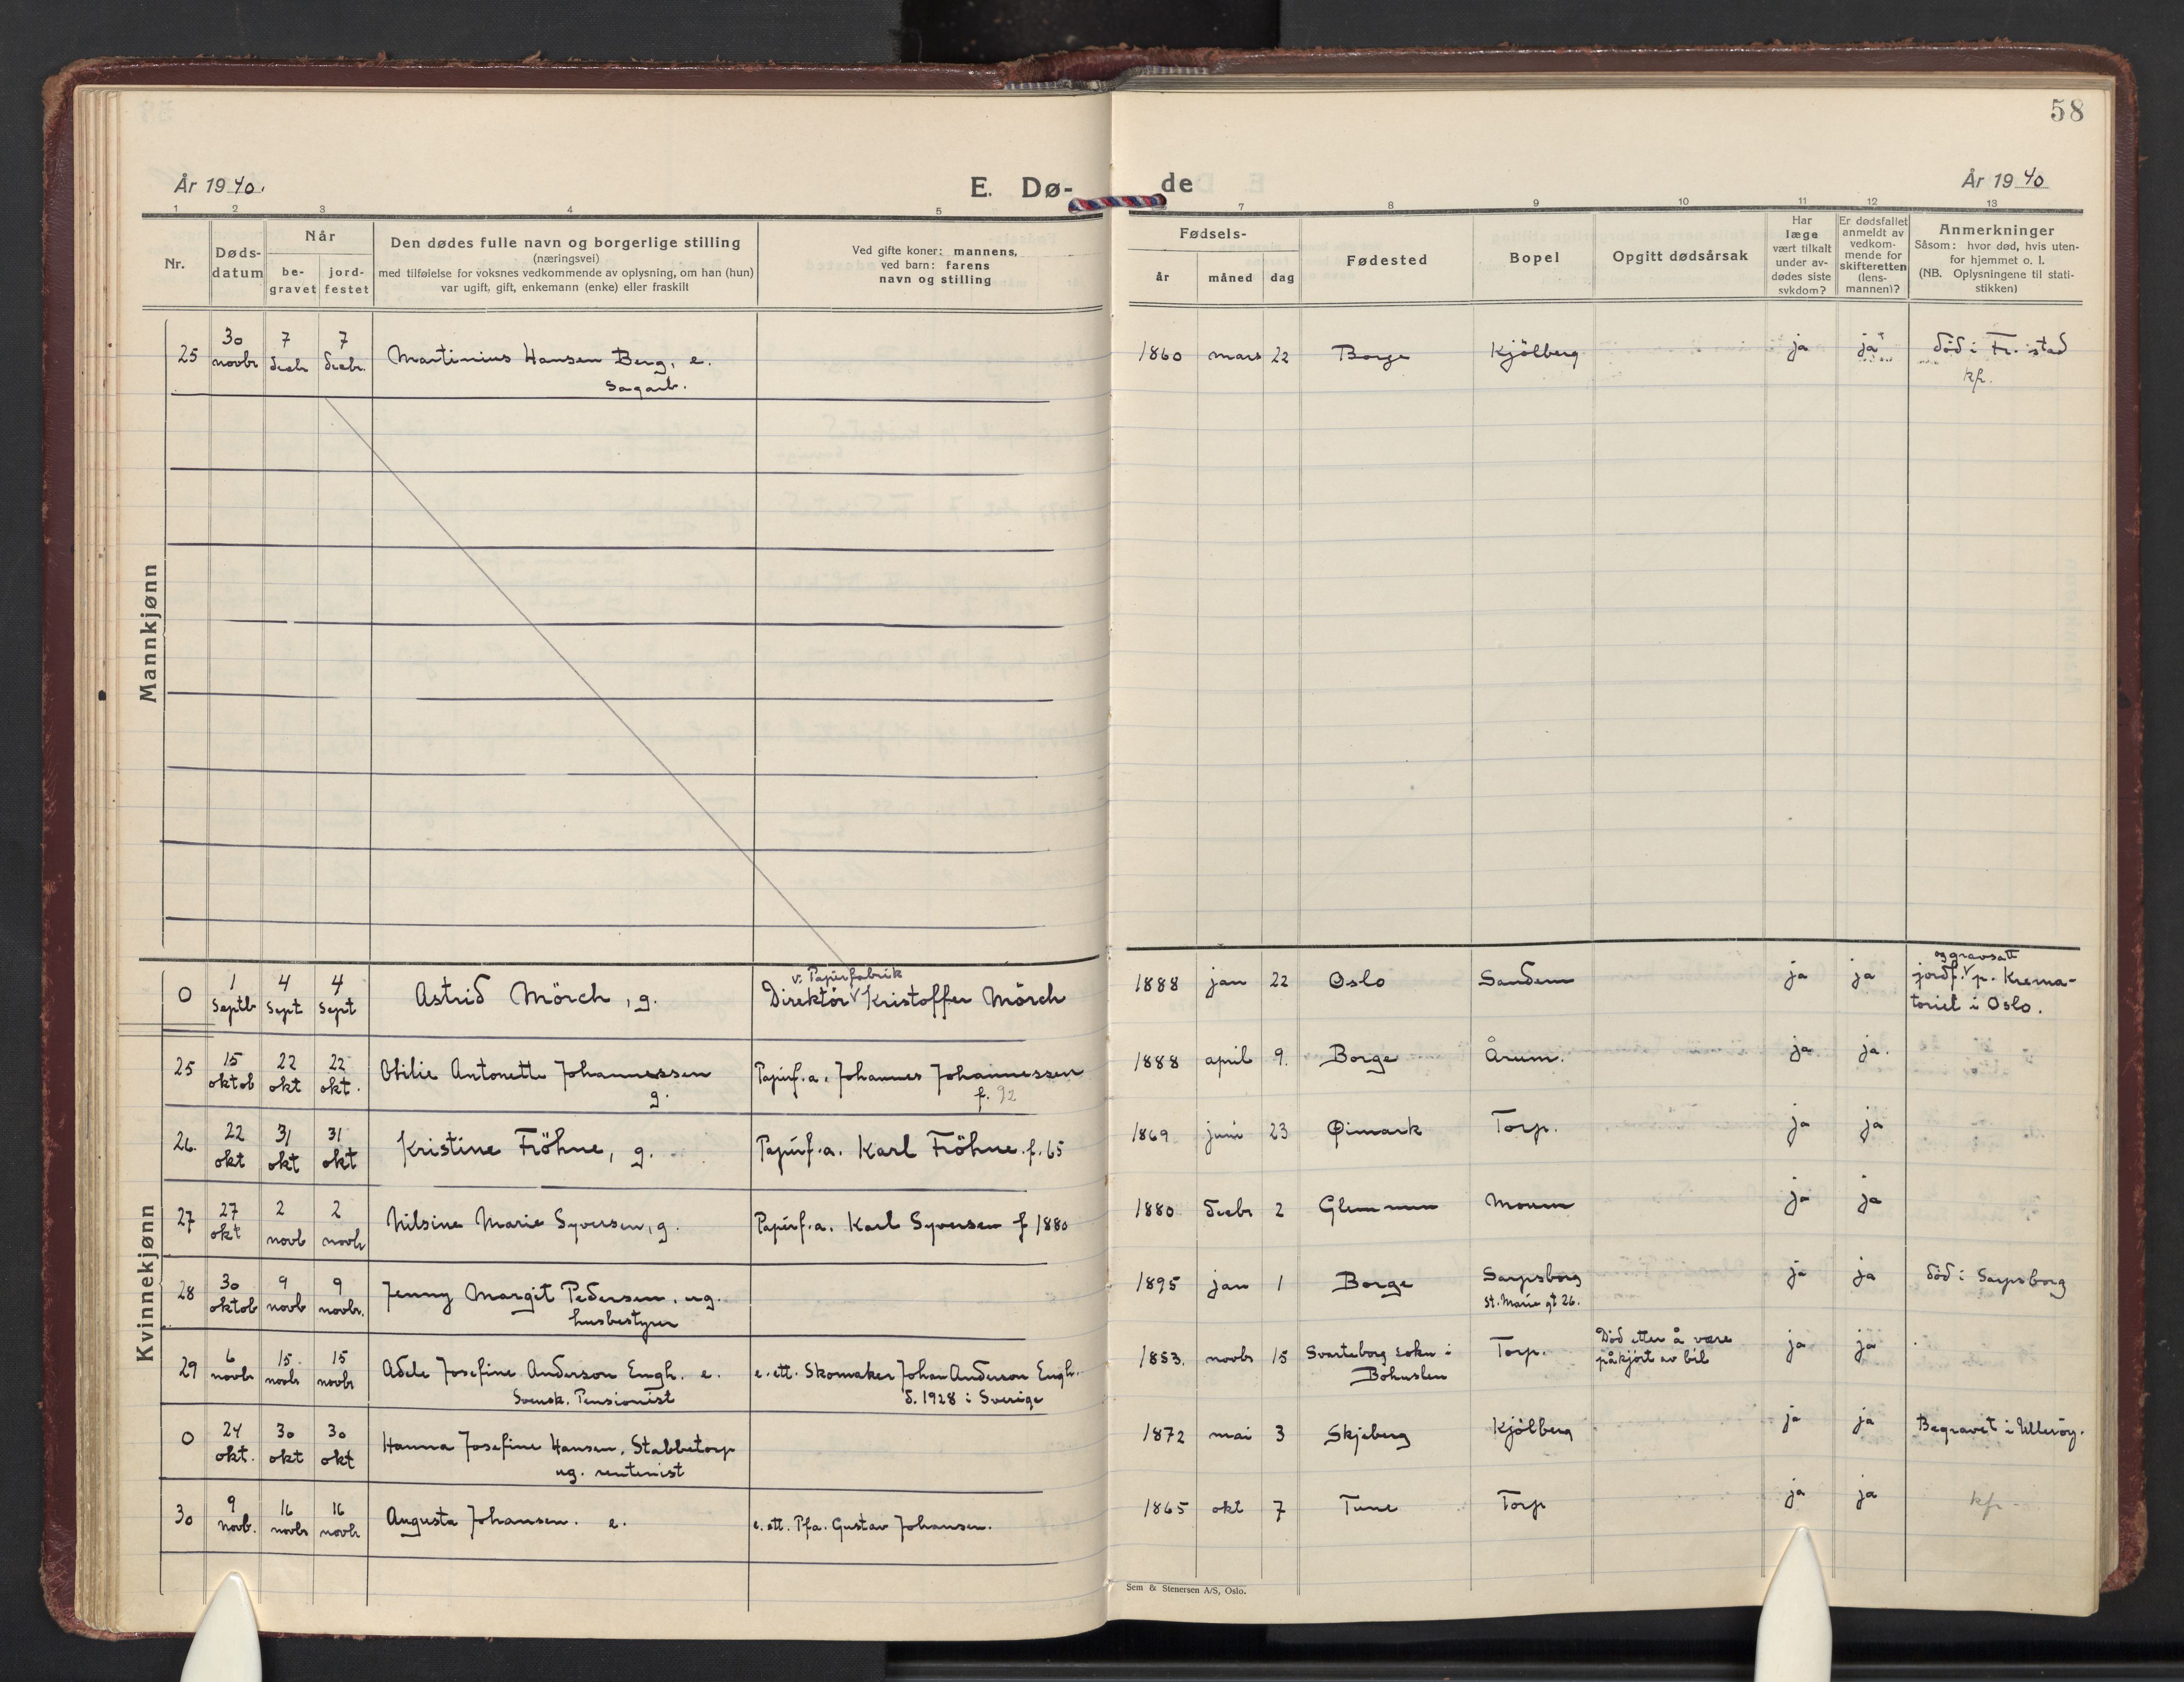 58
År 1940.
E. Dø-
de
År 1940
1 2 3 4 5 7 8 9 10 11 12 13
Nr.
Døds-
datum
Når
be-
gravet
jord-
festet
Den dødes fulle navn og borgerlige stilling
(næringsvei)
med tilføielse for voksnes vedkommende av oplysning, om han (hun)
var ugift, gift, enkemann (enke) eller fraskilt
Ved gifte koner: mannens,
ved barn: farens
navn og stilling
Fødsels-
år
måned
dag
Fødested
Bopel
Opgitt dødsårsak
Har
læge
vært tilkalt
under av-
dødes siste
sykdom?
Er dødsfallet
anmeldt av
vedkom-
mende for
skifteretten
(lens-
mannen)?
Anmerkninger
Såsom: hvor død, hvis uten-
for hjemmet o. l.
(NB. Oplysningene til stati-
stikken)
Mannkjønn
25 30 novbr 7 decbr 7 decbr. Martinius Hansen Berg, e. 1860 mars 22 Borge Kjölberg ja ja död i Fr.stad
Sagarb. kfr.
Kvinnekjønn
v. Papirfabrik og gravsatt
0 1 Septb 4 Sept 4 Sept Astrid Mörch, g. Direktör Kristoffer Mörch 1888 jan 22 Oslo Sandem ja ja jordf. p. Krema-
toriet i Oslo.
25 15 oktob 22 okt 22 okt. Otilie Antonette Johannessen Papirf.a. Johannes Johannessen 1888 april 9. Borge Årum. ja ja.
g. f. 92
26. 22 okt 31 okt 31 okt Kristine Fröhne, g. Papirf.a. Karl Fröhne f. 65 1869 juni 23 Øimark Torp. ja ja
27 27 okt 2 novb 2 novbr Nilsine Marie Syversen, g. Papirf.a. Karl Syversen f 1880 1880 decbr 2 Glemmen Moum ja ja
28 30 oktob 9 novb 9 novbr. Jenny Margit Pedersen, ug. 1895 jan 1 Borge Sarpsborg ja ja död i Sarpsborg
husbestyrer St. Marie gt 26.
29 6 novbr 15 novbr 15 novbr Adele Josefine Anderson Engh. e. e. ett. Skomaker Johan Anderson Engh. 1853. novbr 15 Svarteborg sokn i Torp. Död etter å være ja ja
Svensk. Pensionist d. 1928 i Sverige Bohuslen påkjört av bil
0 24 okt. 30 okt 30 okt Hanna Josefine Hansen, Stabbetorp 1872 mai 3 Skjeberg Kjölberg ja ja Begravet i Ulleröy.
ug. rentenist
30 9 novb. 16 novbr 16 novbr Augusta Johansen. e. e. ett. Pfa. Gustav Johansen. 1865 okt 7 Tune Torp ja ja kfr.
Sem & Stenersen A/S, Oslo.